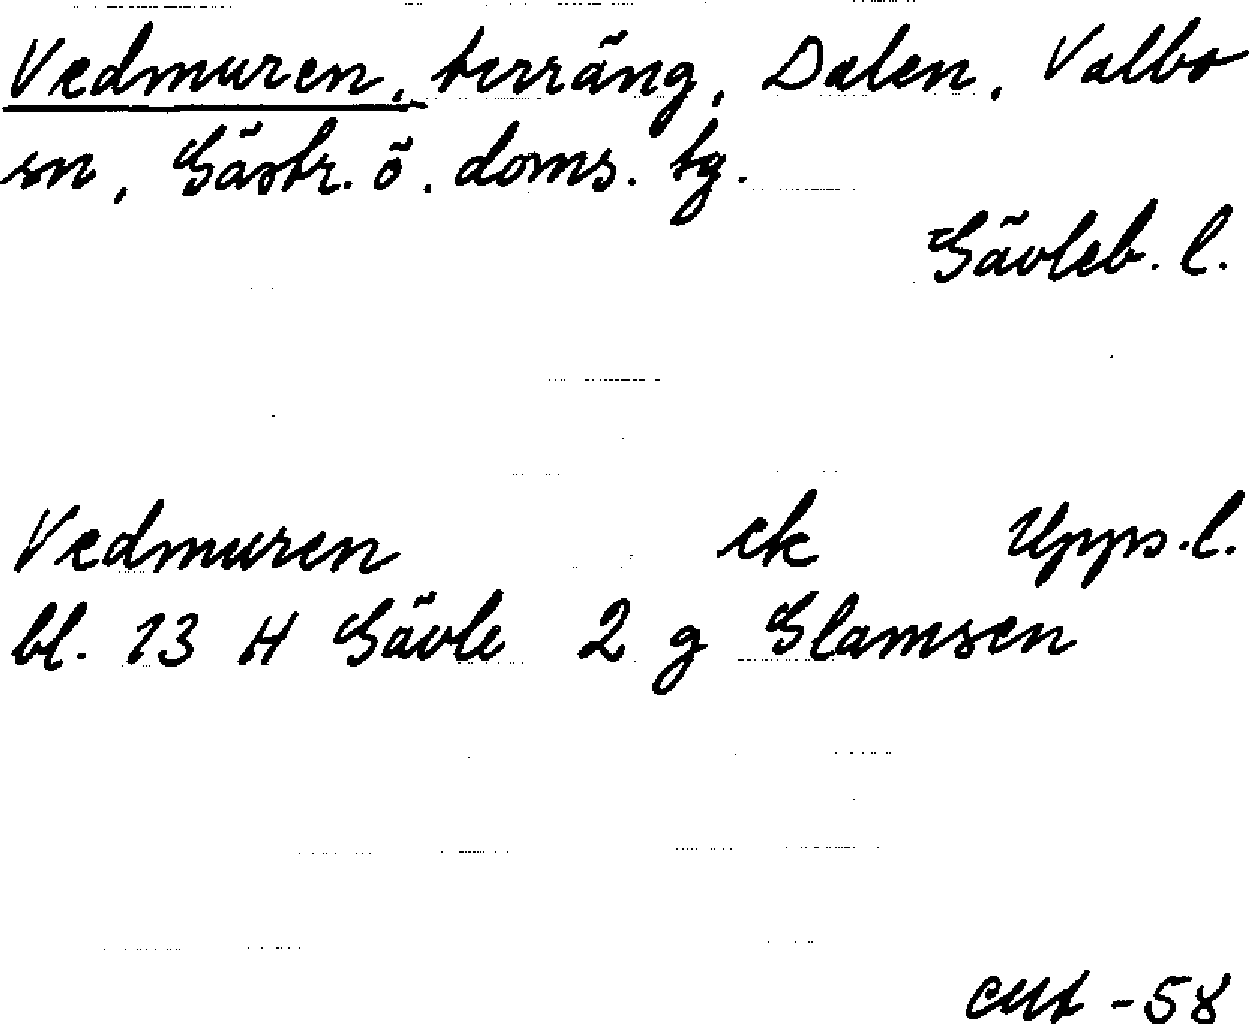 Vedmuren, terräng, Dalen, Valbo
sn, Gästr. ö. doms. tg.
Gävleb. l.
Vedmuren ek Upps. l.
bl. 13 H Gävle 2 g Glamsen
-58